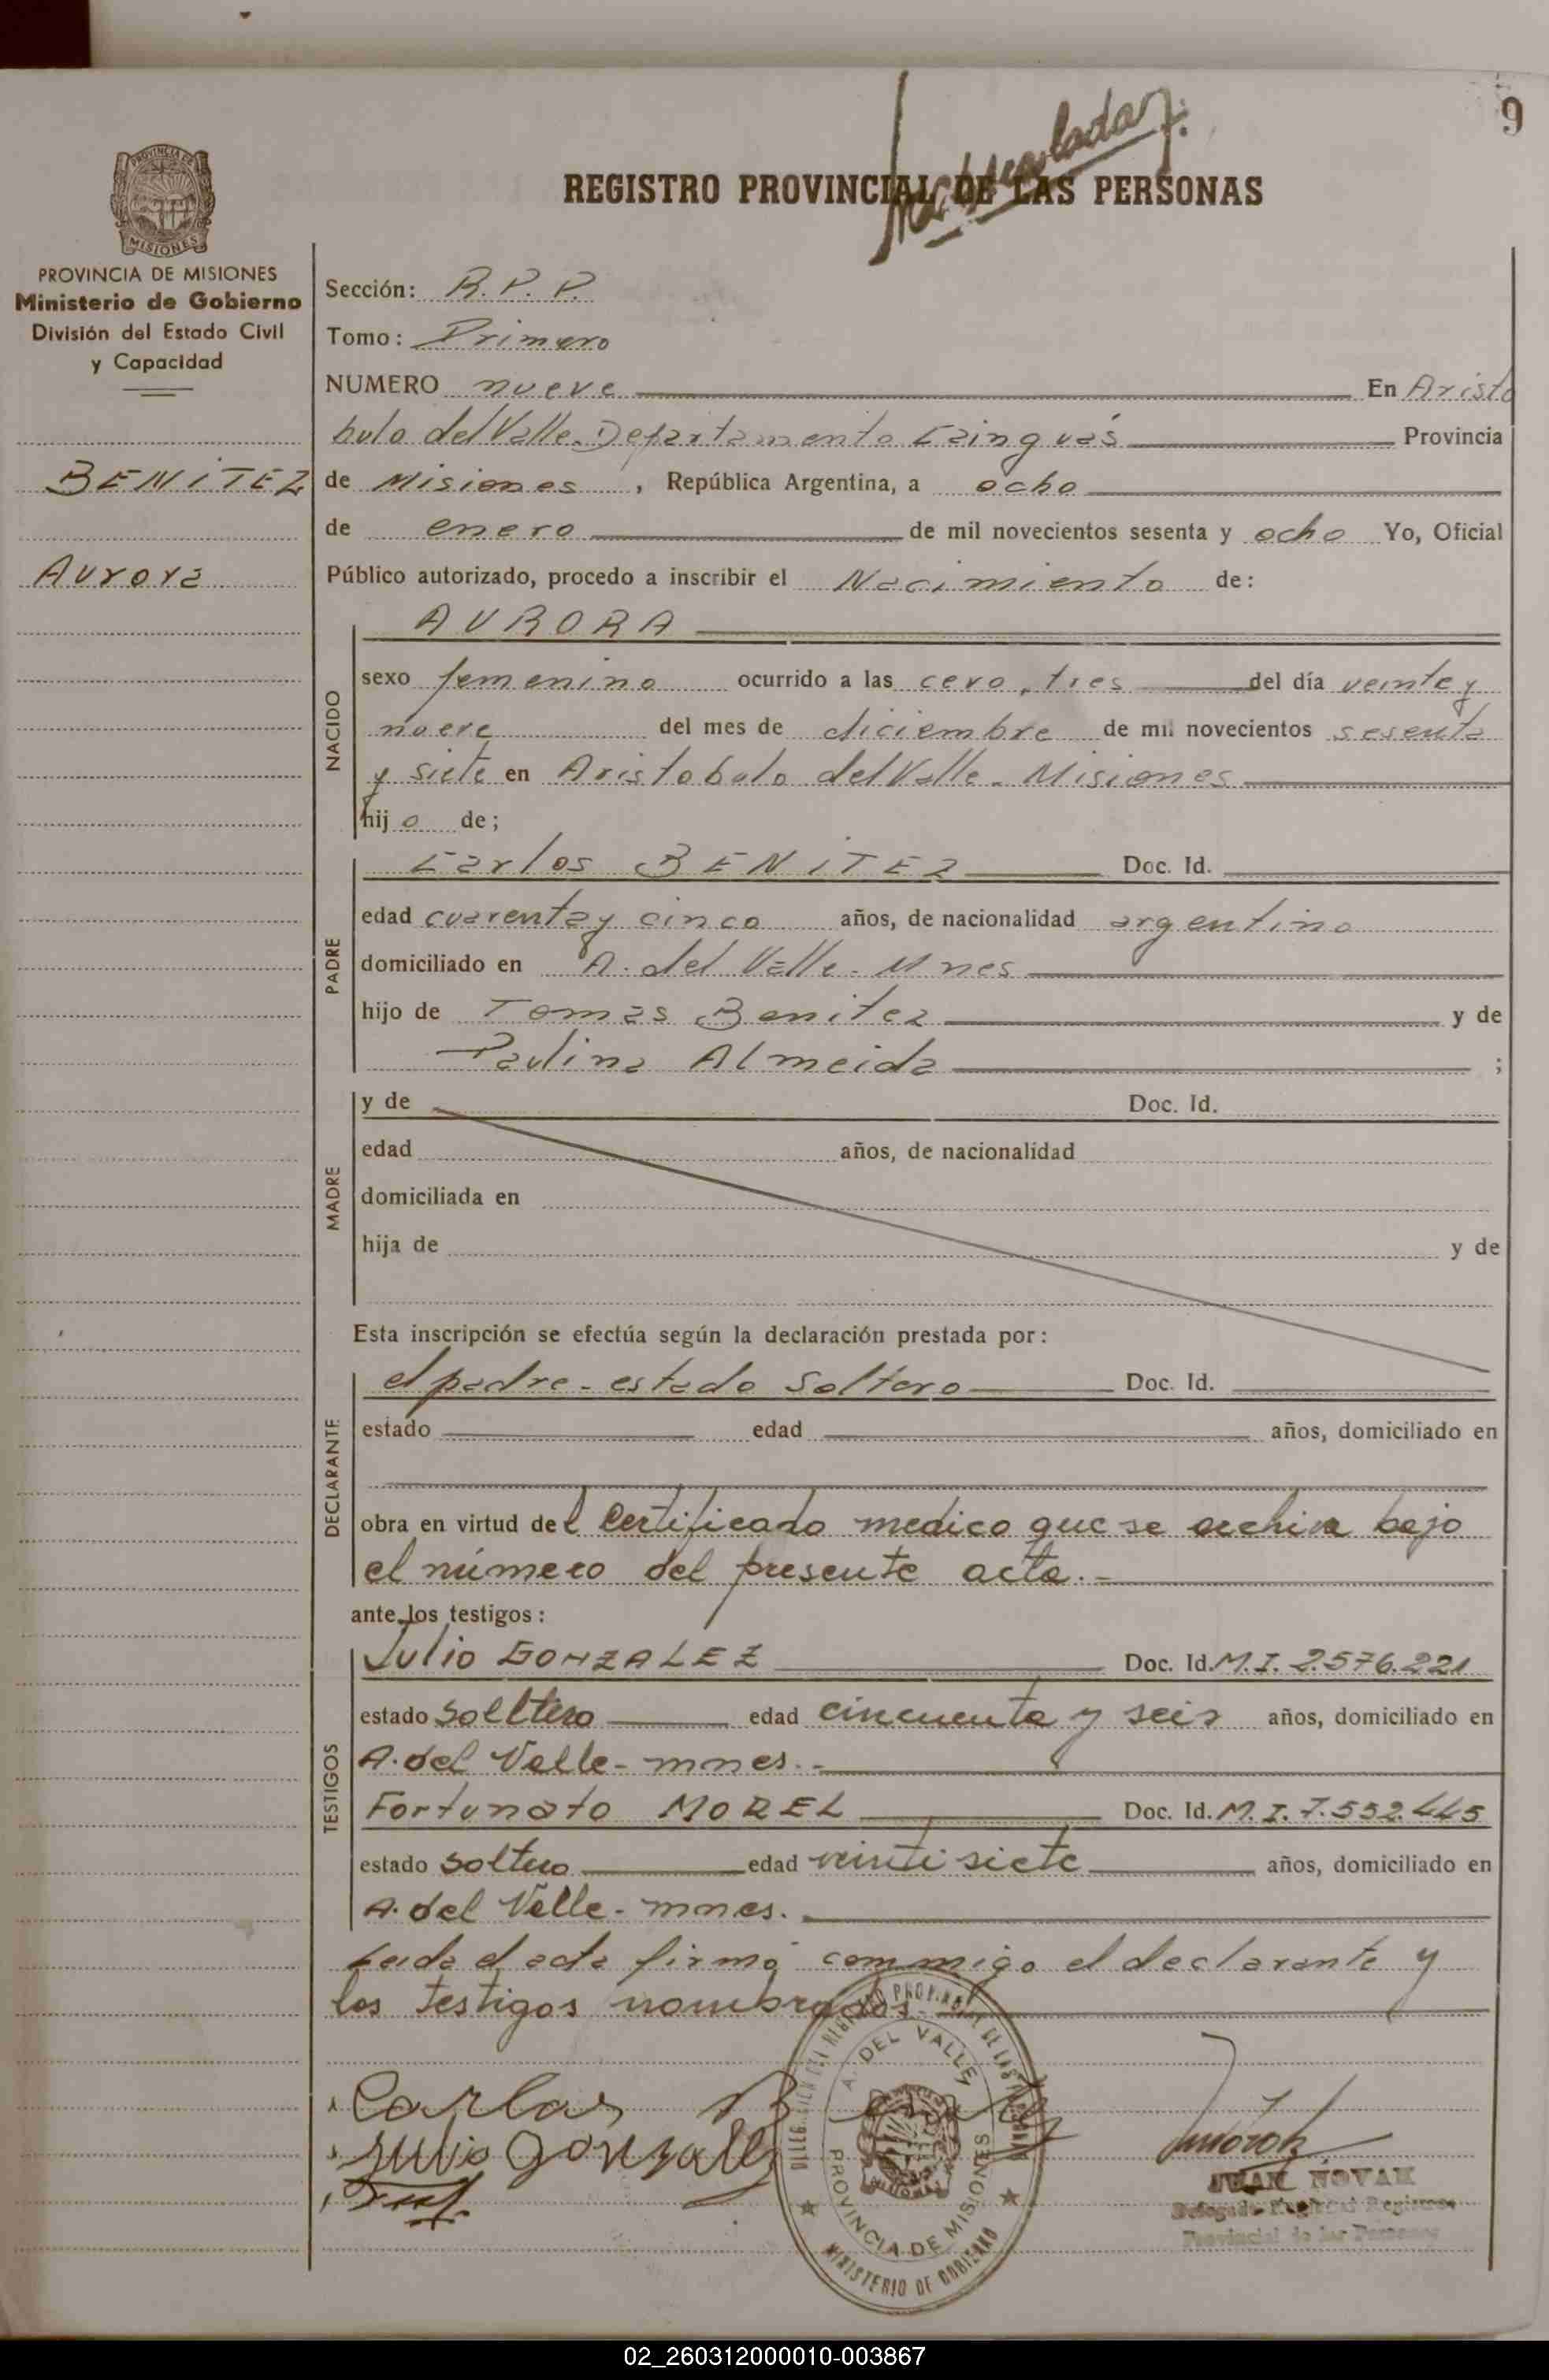 9
Matriculada
REGISTRO PROVINCIAL DE LAS PERSONAS
PROVINCIA DE
MISIONES
PROVINCIA DE MISIONES
Ministerio de Gobierno
División del Estado Civil
y Capacidad
BENITEZ
Aurora
Sección: R. P. P.
Tomo: Primero
NUMERO nueve En Aristo
bulo del Valle. Departamento Cainguás Provincia
de Misiones, República Argentina, a ocho
de enero de mil novecientos sesenta y ocho Yo, Oficial
Público autorizado, procedo a inscribir el Nacimiento de:
NACIDO
AURORA
sexo femenino ocurrido a las cero, tres del día veinte y
nueve del mes de diciembre de mil novecientos sesenta
y siete en Aristobulo del Valle - Misiones
hijo de;
PADRE
Carlos BENITEZ Doc. Id.
edad cuarenta y cinco años, de nacionalidad argentino
domiciliado en A. del Valle - Mnes
hijo de Tomas Benitez y de
Paulina Almeida ;
MADRE
y de Doc. Id.
edad años, de nacionalidad
domiciliada en
hija de y de
Esta inscripción se efectúa según la declaración prestada por:
DECLARANTE
el padre - estado Soltero Doc. Id.
estado edad años, domiciliado en
obra en virtud del Certificado medico que se archiva bajo
el número del presente acta.-
ante los testigos:
TESTIGOS
Julio GONZALEZ Doc. Id. M.I. 2.576.221
estado Solltero edad cincuenta y seis años, domiciliado en
A. del Valle - mnes.-
Fortunato MOREL Doc. Id. M.I. 7.552.445
estado soltero edad veinti siete años, domiciliado en
A. del Valle - mnes.
Leida el acta firmó conmmigo el declarante y
los testigos nombrados.
Carlos Benitez
Julio Gonzalez
A. DEL VALLE
PROVINCIA DE MISIONES
MINISTERIO DE GOBIERNO
JUAN NOVAK
Provincial de las Personas
02_260312000010-003867